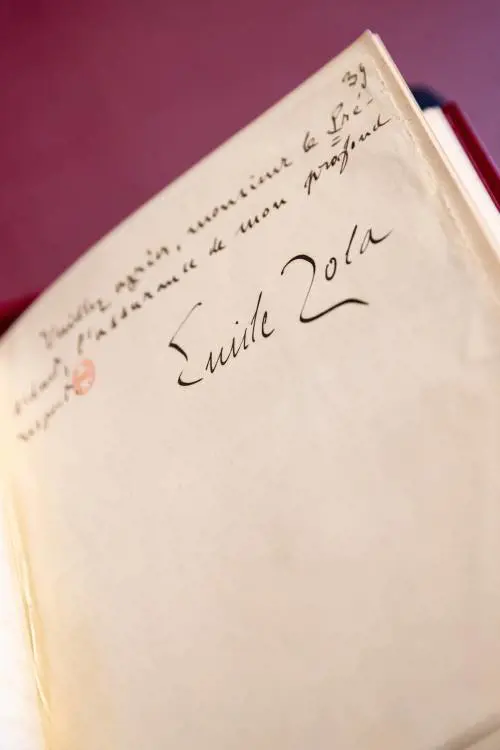 39
Veuillez agréer, monsieur le Pré-
sident, l'assurance de mon profond
respect.
Emile Zola